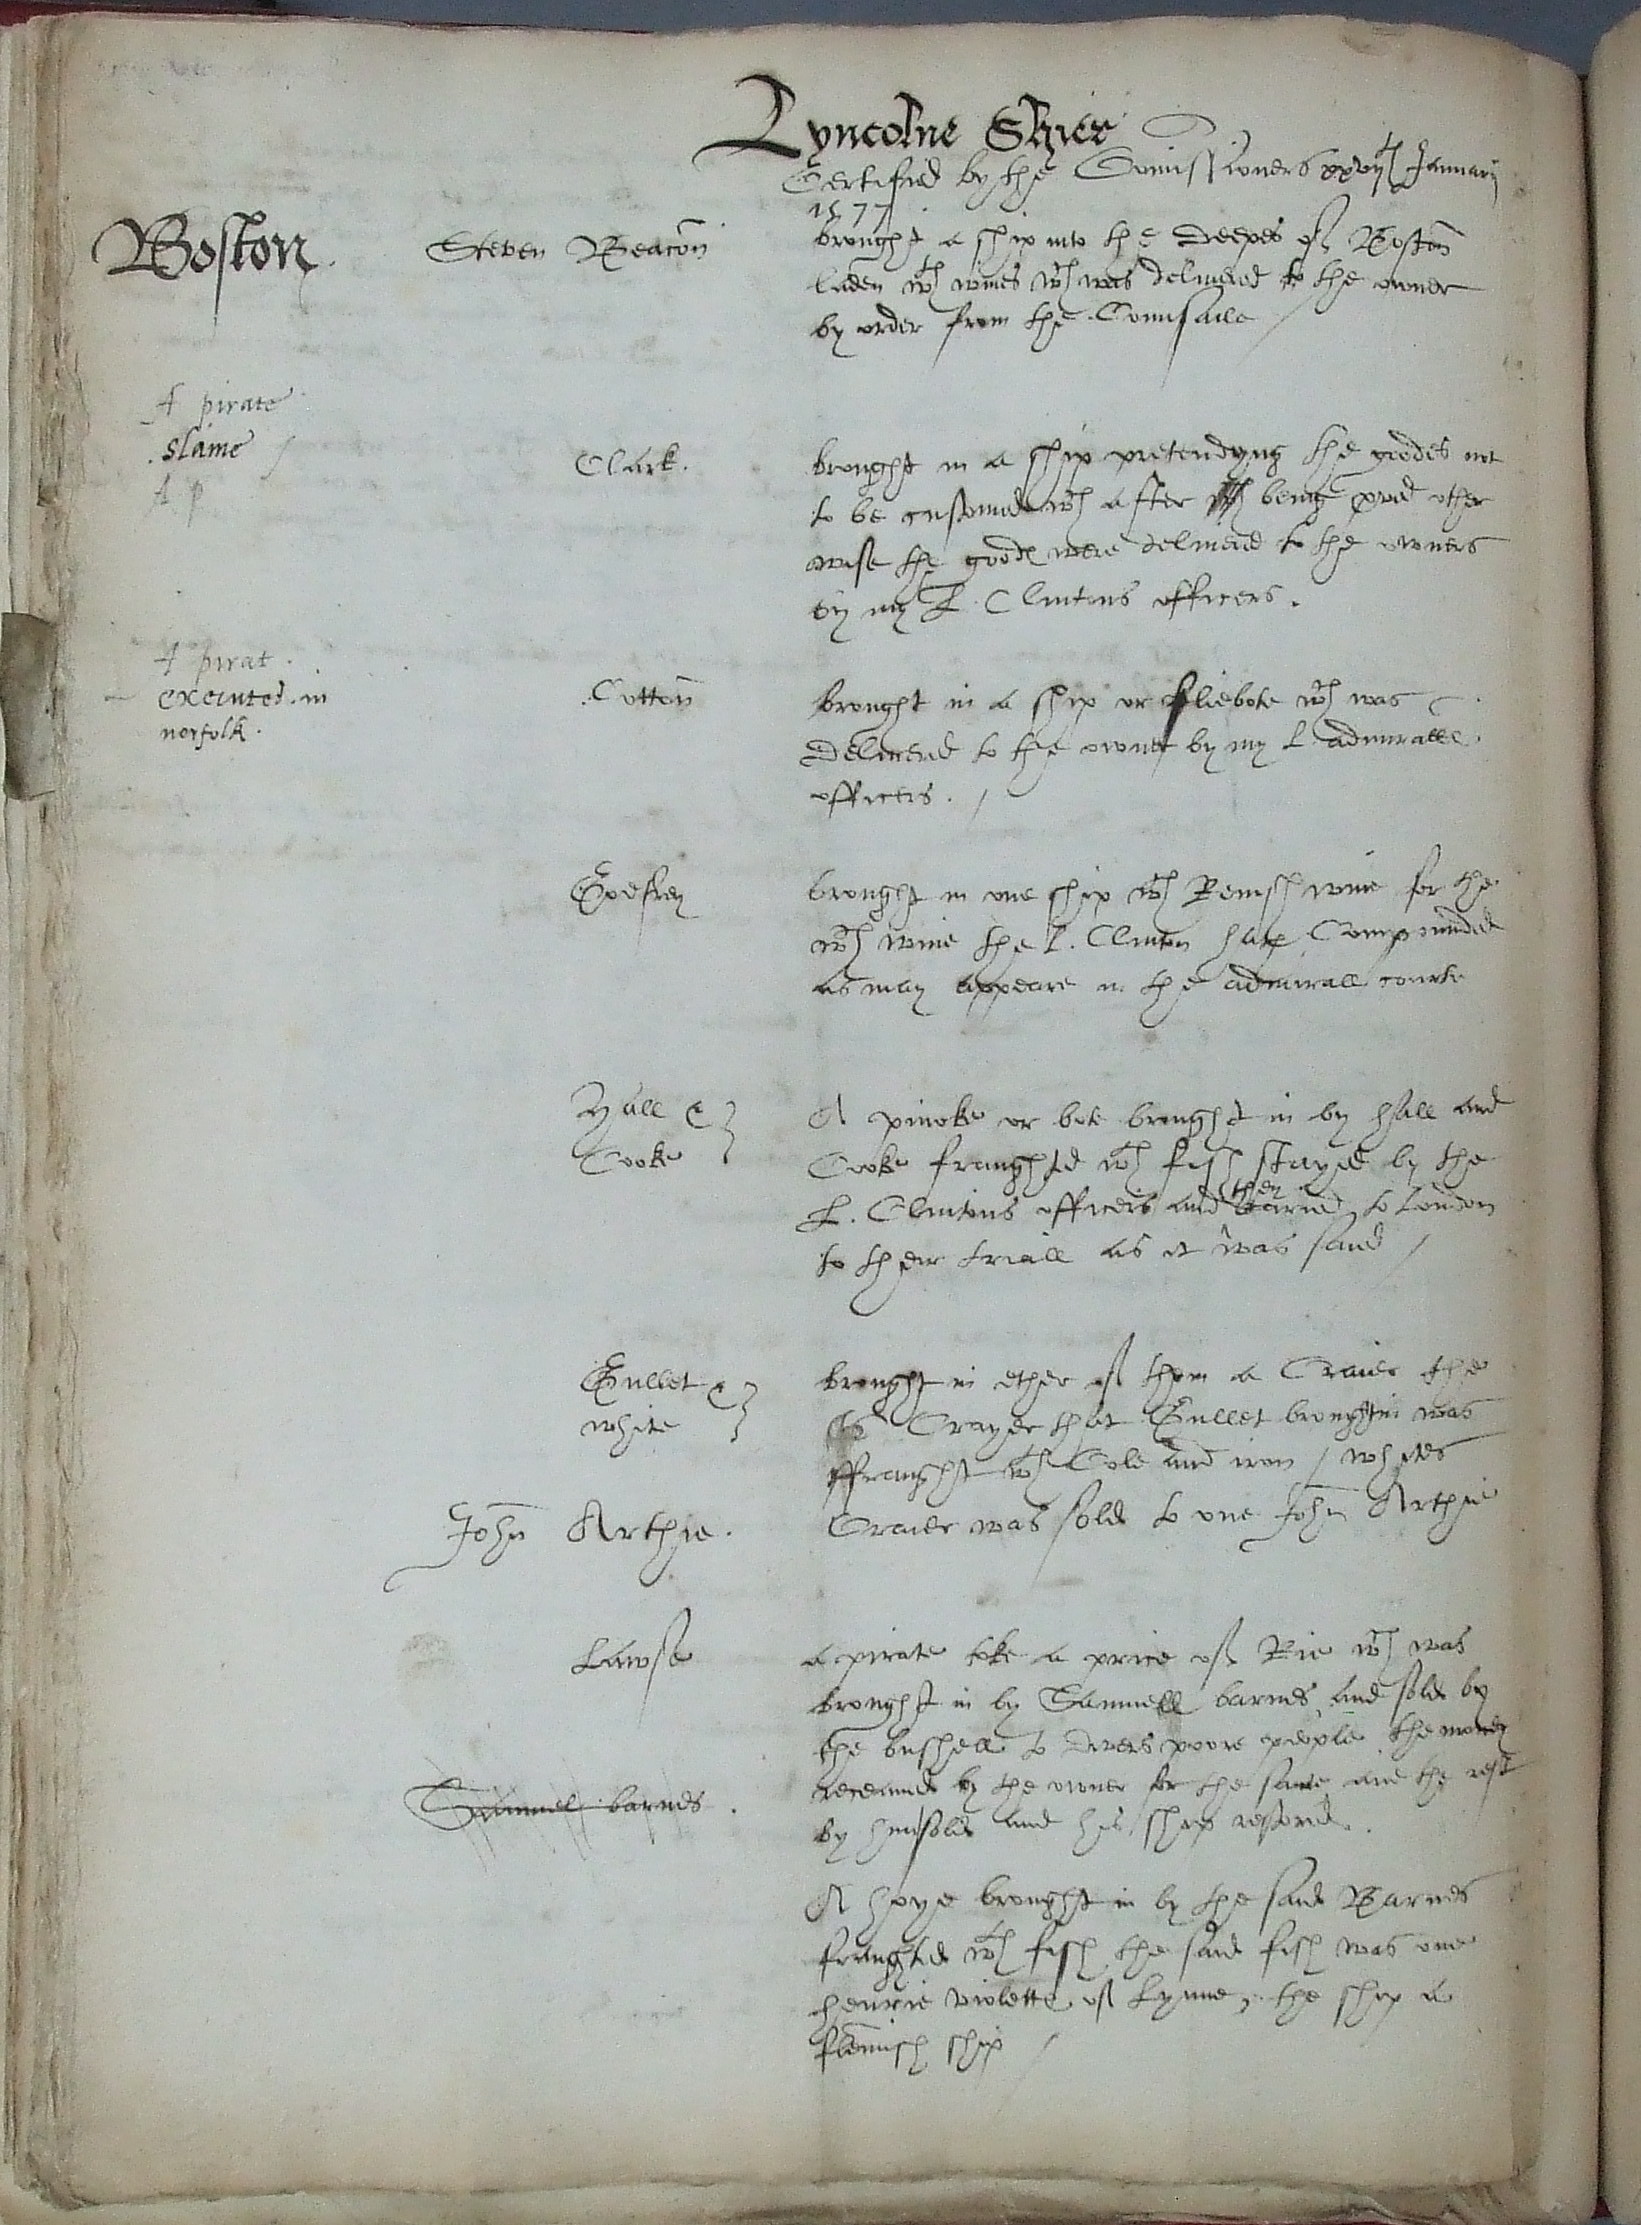 Lyncolne Shier
Certified by the Comissioners xxvijth January
1577
Boston. Steven Beacon brought a ship into the deepes of Boston
laden wth wines wch was deliuered to the owner
by order from the Counsaile /
A pirate
slaine /
A p
Clark. brought in a ship pretendyng the goodes not
to be customed wch after being proued other
wise the goodes were deliuered to the owners
by my L. Clintons officers.
A pirat.
executed in
norfolk.
Cotton brought in a ship or fliebote wch was
deliuered to the owner by my L. admiralle
officers. /
Godfrey brought in one ship wth Renish wine for the
wch wine the L. Clinton hath Compounded
as may appeare in the admirall courte
Hall &
Cooke
A pincke or bote brought in by Hall and
Cooke fraughted wth fish stayed by the
L. Clintons officers and they caried to London
to their triall as it was said /
Gullet &
White
brought in ether of them a Craier the
Crayer that Gullet brought in was
ffraught wth Cole and iron / whites
John Arthie. Craier was sold to one John Arthie
Lawse a pirate toke a price of Rie wch was
brought in by Samuell barnes and sold by
the bushell to divers poore people the money
Samuel barnes. receaued by the owner for the same and the rest
by him sold and his ship restored.
A hoye brought in by the said Barnes
fraughted wth fish the said fish was one
henrie violette of Lynne, the ship a
flemish ship /